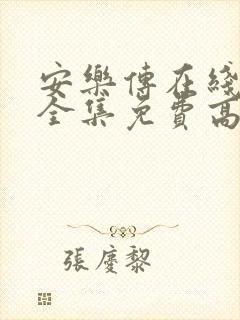 安樂傳在綫
全集免費高
張慶黎